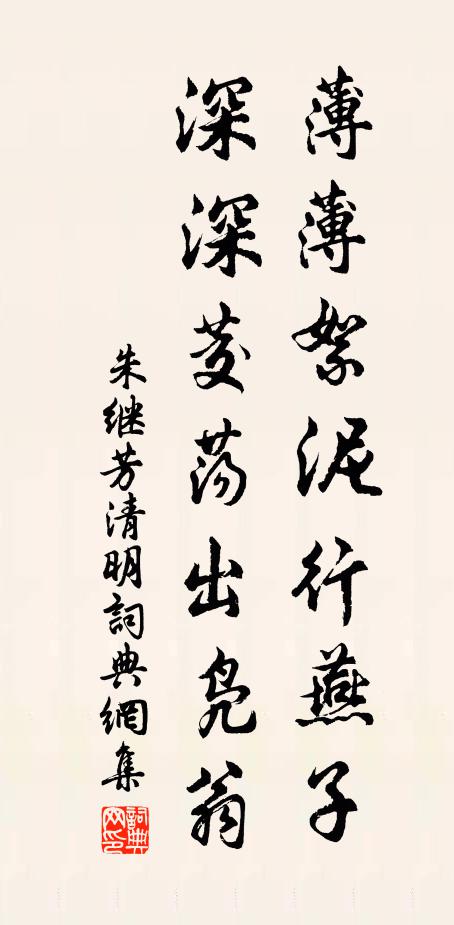 薄薄絮泥行燕子
深深茭荡出凫翁
朱继芳清明詞典網集
詞典
网印